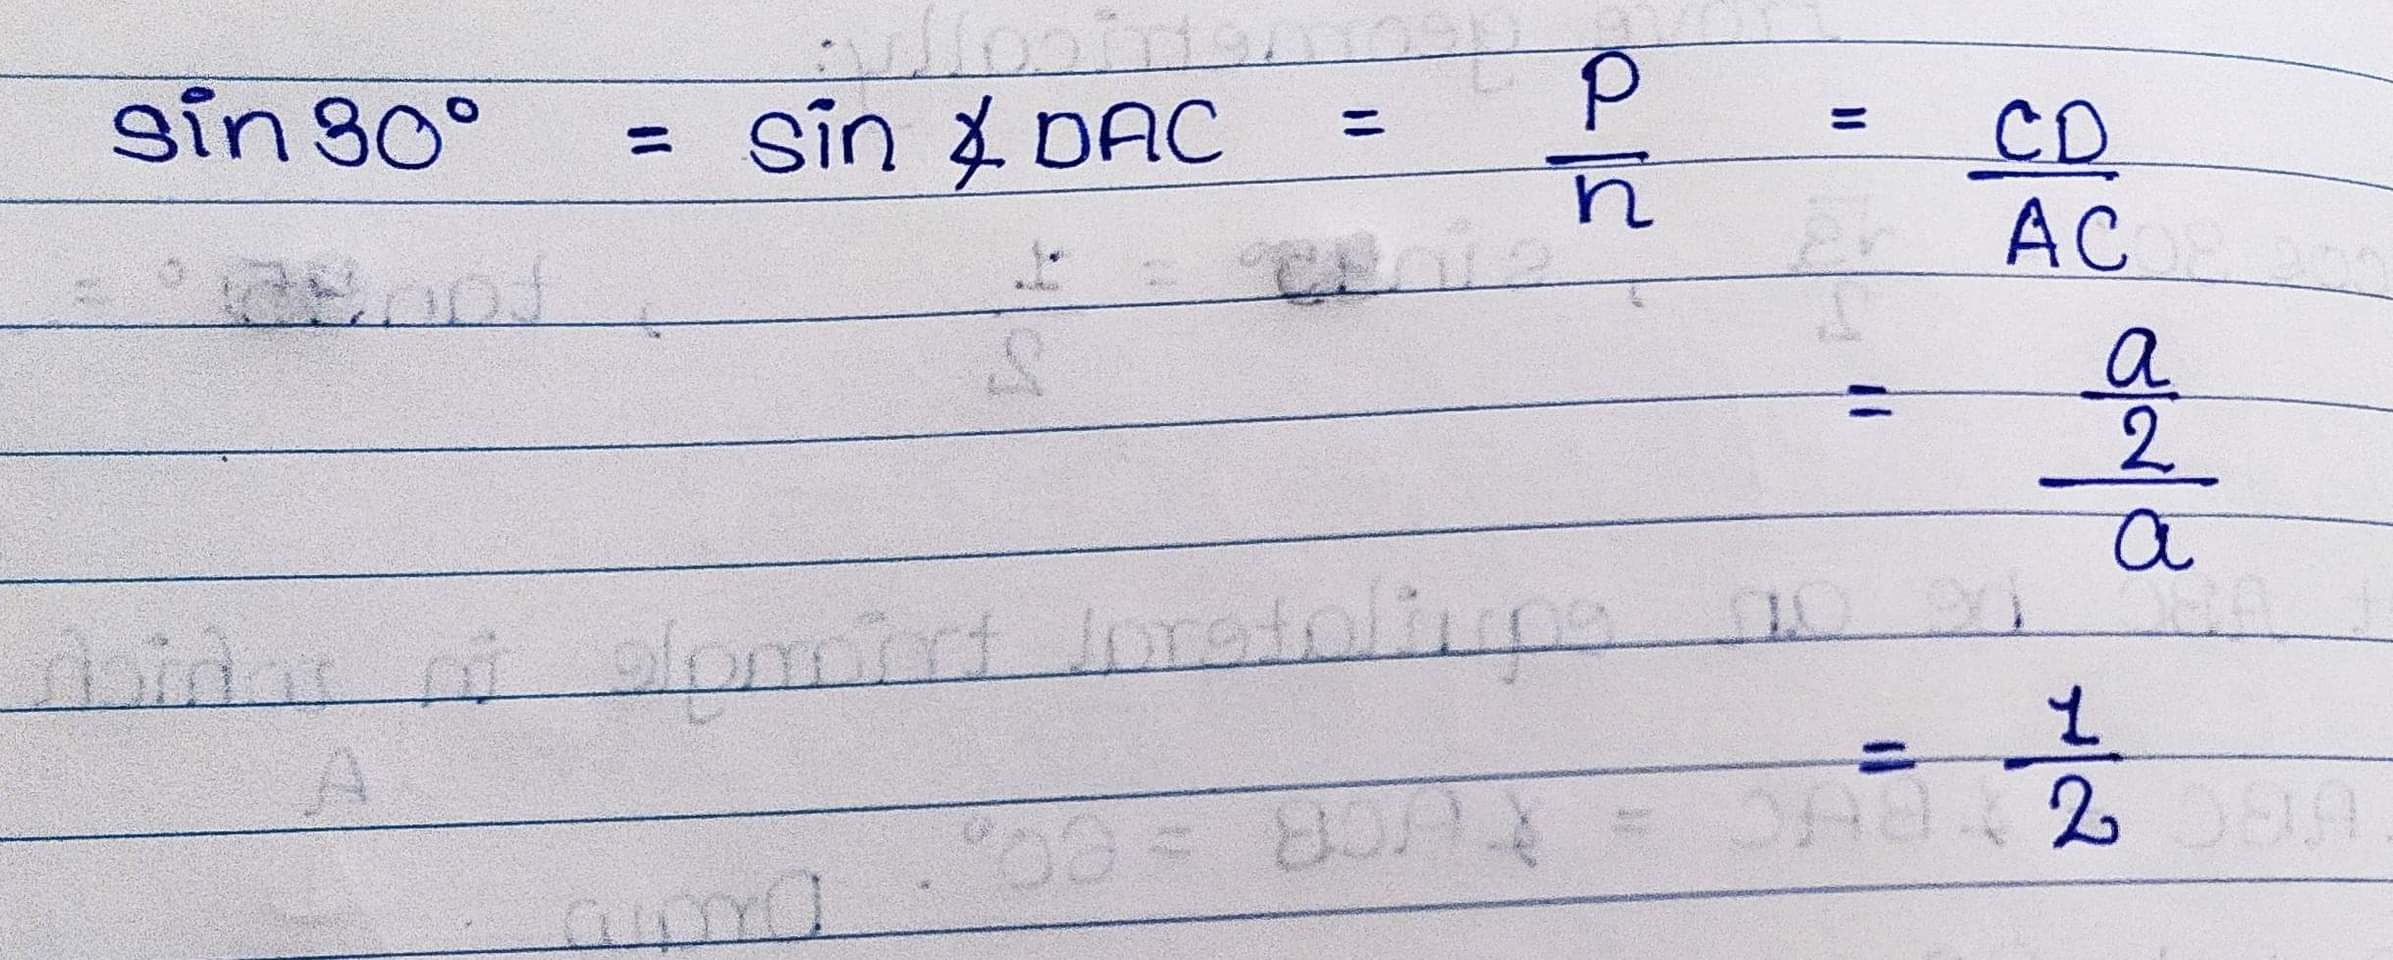 sin 30° = sin ∡ DAC = P/h = CD/AC
= a/2/a
= 1/2